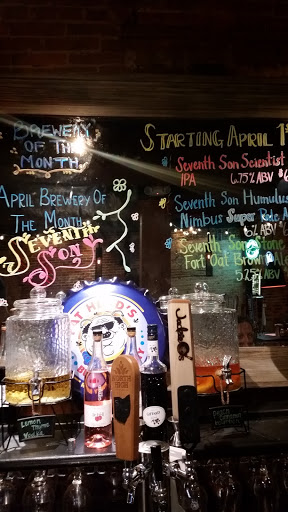 BREWERY
OF THE
MONTH
APRIL BREWERY OF
THE MONTH
SEVENTH
SON
STARTING APRIL 1
SEVENTH SON SCIENTIST
IPA
6.75% ABV
SEVENTH SON HUMULUS
NIMBUS SUPER PALE A
6% ABV
SEVENTH SON STONE
FORT OAT BROWN ALE
5.25% ABV
FAT HEAD'S
LEMON THYME
VODKA